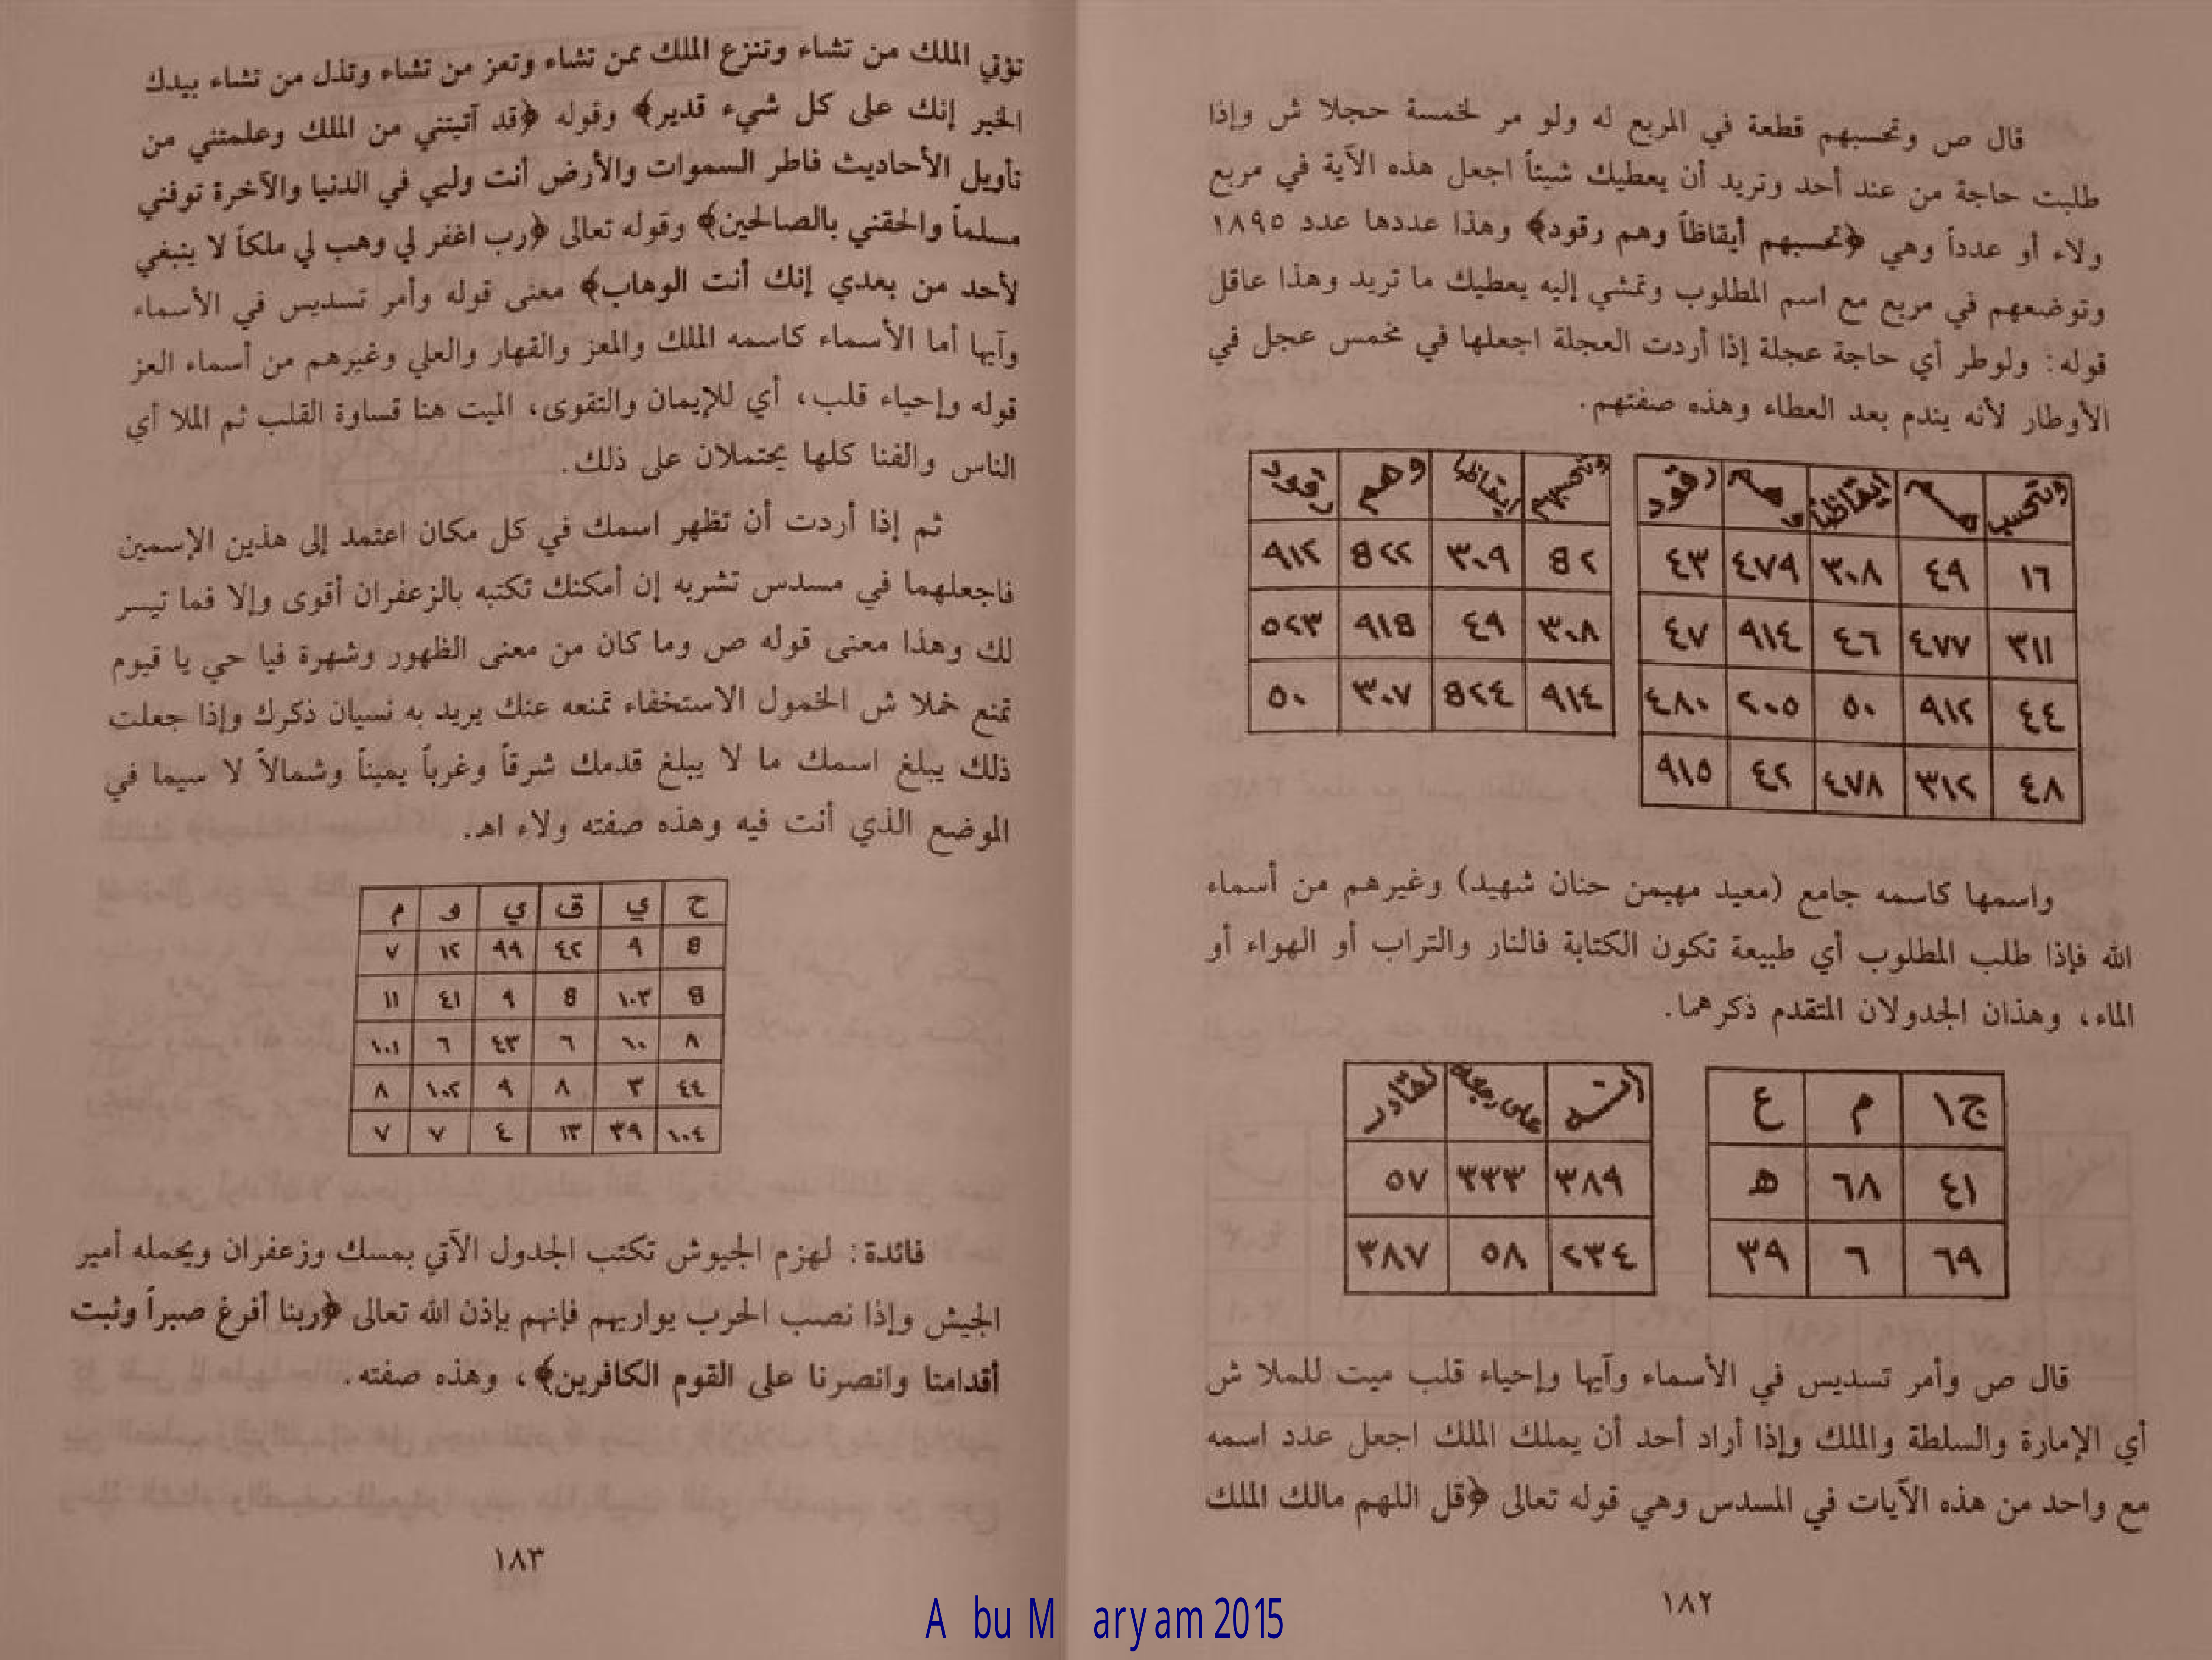 قال ص وتحسبهم قطعة في المربع له ولو مر لخمسة حجلا ش وإذا
طلبت حاجة من عند أحد وتريد أن يعطيك شيئاً اجعل هذه الآية في مربع
ولاء أو عدداً وهي ﴿تحسبهم أيقاظاً وهم رقود﴾ وهذا عددها عدد ١٨٩٥
وتوضعهم في مربع مع اسم المطلوب وتمشي إليه يعطيك ما تريد وهذا عاقل
قوله: ولوطر أي حاجة عجلة إذا أردت العجلة اجعلها في مخمس عجل في
الأوطار لأنه يندم بعد العطاء وهذه صفتهم.
وتحسب هم أيقاظاً وهم رقود
١٦ ٤٩ ٣٠٨ ٤٧٩ ٤٣
٣١١ ٤٧٧ ٤٦ ٩١٤ ٤٧
٤٤ ٩١٢ ٥٠ ٢٠٥ ٤٨٠
٤٨ ٣١٢ ٤٧٨ ٤٢ ٩١٥
وتحسبهم ايقاظا وهم رقود
8٢ ٣٠٩ 8٢٢ ٩١٢
٣٠٨ ٤٩ ٩١8 ٥٢٣
٩١٤ 8٢٤ ٣٠٧ ٥٠
واسمها كاسمه جامع (معيد مهيمن حنان شهيد) وغيرهم من أسماء
الله فإذا طلب المطلوب أي طبيعة تكون الكتابة فالنار والتراب أو الهواء أو
الماء، وهذان الجدولان المتقدم ذكرهما.
جا م ع
٤١ ٦٨ ه
٦٩ ٦ ٣٩
انه على رجعه لقادر
٣٨٩ ٣٣٣ ٥٧
٢٣٤ ٥٨ ٣٨٧
قال ص وأمر تسديس في الأسماء وآيها وإحياء قلب ميت للملا ش
أي الإمارة والسلطة والملك وإذا أراد أحد أن يملك الملك اجعل عدد اسمه
مع واحد من هذه الآيات في المسدس وهي قوله تعالى ﴿قل اللهم مالك الملك
١٨٢
تؤتي الملك من تشاء وتنزع الملك ممن تشاء وتعز من تشاء وتذل من تشاء بيدك
الخير إنك على كل شيء قدير﴾ وقوله ﴿قد آتيتني من الملك وعلمتني من
تأويل الأحاديث فاطر السموات والأرض أنت وليي في الدنيا والآخرة توفني
مسلماً والحقني بالصالحين﴾ وقوله تعالى ﴿رب اغفر لي وهب لي ملكاً لا ينبغي
لأحد من بعدي إنك أنت الوهاب﴾ معنى قوله وأمر تسديس في الأسماء
وآيها أما الأسماء كاسمه الملك والمعز والقهار والعلي وغيرهم من أسماء العز
قوله وإحياء قلب، أي للإيمان والتقوى، الميت هنا قساوة القلب ثم الملا أي
الناس والفنا كلها يحتملان على ذلك.
ثم إذا أردت أن تظهر اسمك في كل مكان اعتمد إلى هذين الإسمين
فاجعلهما في مسدس تشربه إن أمكنك تكتبه بالزعفران أقوى وإلا فما تيسر
لك وهذا معنى قوله ص وما كان من معنى الظهور وشهرة فيا حي يا قيوم
تمنع خملا ش الخمول الاستخفاء تمنعه عنك يريد به نسيان ذكرك وإذا جعلت
ذلك يبلغ اسمك ما لا يبلغ قدمك شرقاً وغرباً يميناً وشمالاً لا سيما في
الموضع الذي أنت فيه وهذه صفته ولاء اهـ.
ح ي ق ي و م
8 ٩ ٤٢ ٩٩ ١٢ ٧
8 ١٠٣ 8 ٩ ٤١ ١١
٨ ٦٠ ٦ ٤٣ ٦ ١٠١
٤٤ ٣ ٨ ٩ ١٠٢ ٨
١٠٤ ٣٩ ١٣ ٤ ٧ ٧
فائدة: لهزم الجيوش تكتب الجدول الآتي بمسك وزعفران ويحمله أمير
الجيش وإذا نصب الحرب يواريهم فإنهم بإذن الله تعالى ﴿ربنا أفرغ صبراً وثبت
أقدامنا وانصرنا على القوم الكافرين﴾، وهذه صفته.
١٨٣
Abu Maryam 2015